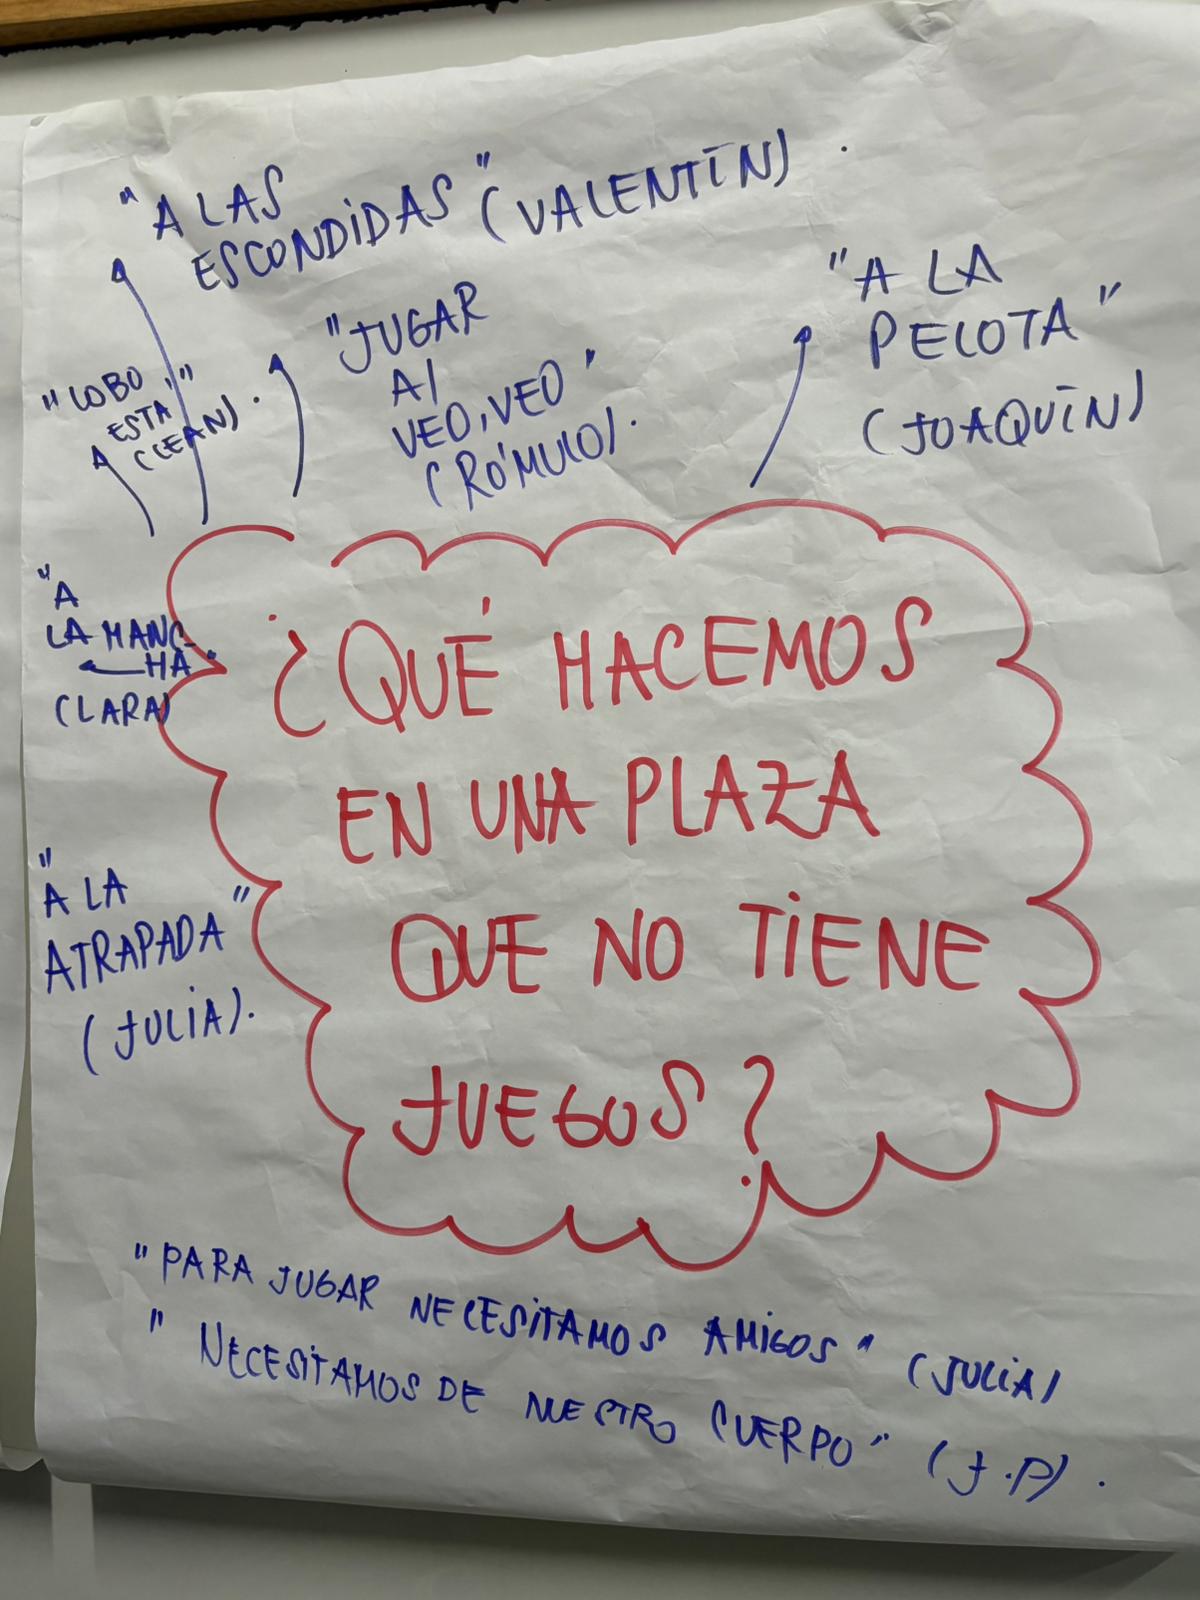 "A LAS
ESCONDIDAS" (VALENTÍN).
"JUGAR
AI
VEO, VEO"
(RÓMULO).
"A LA
PELOTA"
(JOAQUÍN)
"LOBO
ESTÁ"
(LEAN).
"A
LA MANC-
HA"
(CLARA)
"A LA
ATRAPADA"
(JULIA).
¿QUÉ HACEMOS
EN UNA PLAZA
QUE NO TIENE
JUEGOS?
"PARA JUGAR NECESITAMOS AMIGOS" (JULIA)
"NECESITAMOS DE NUESTRO CUERPO" (J.P).